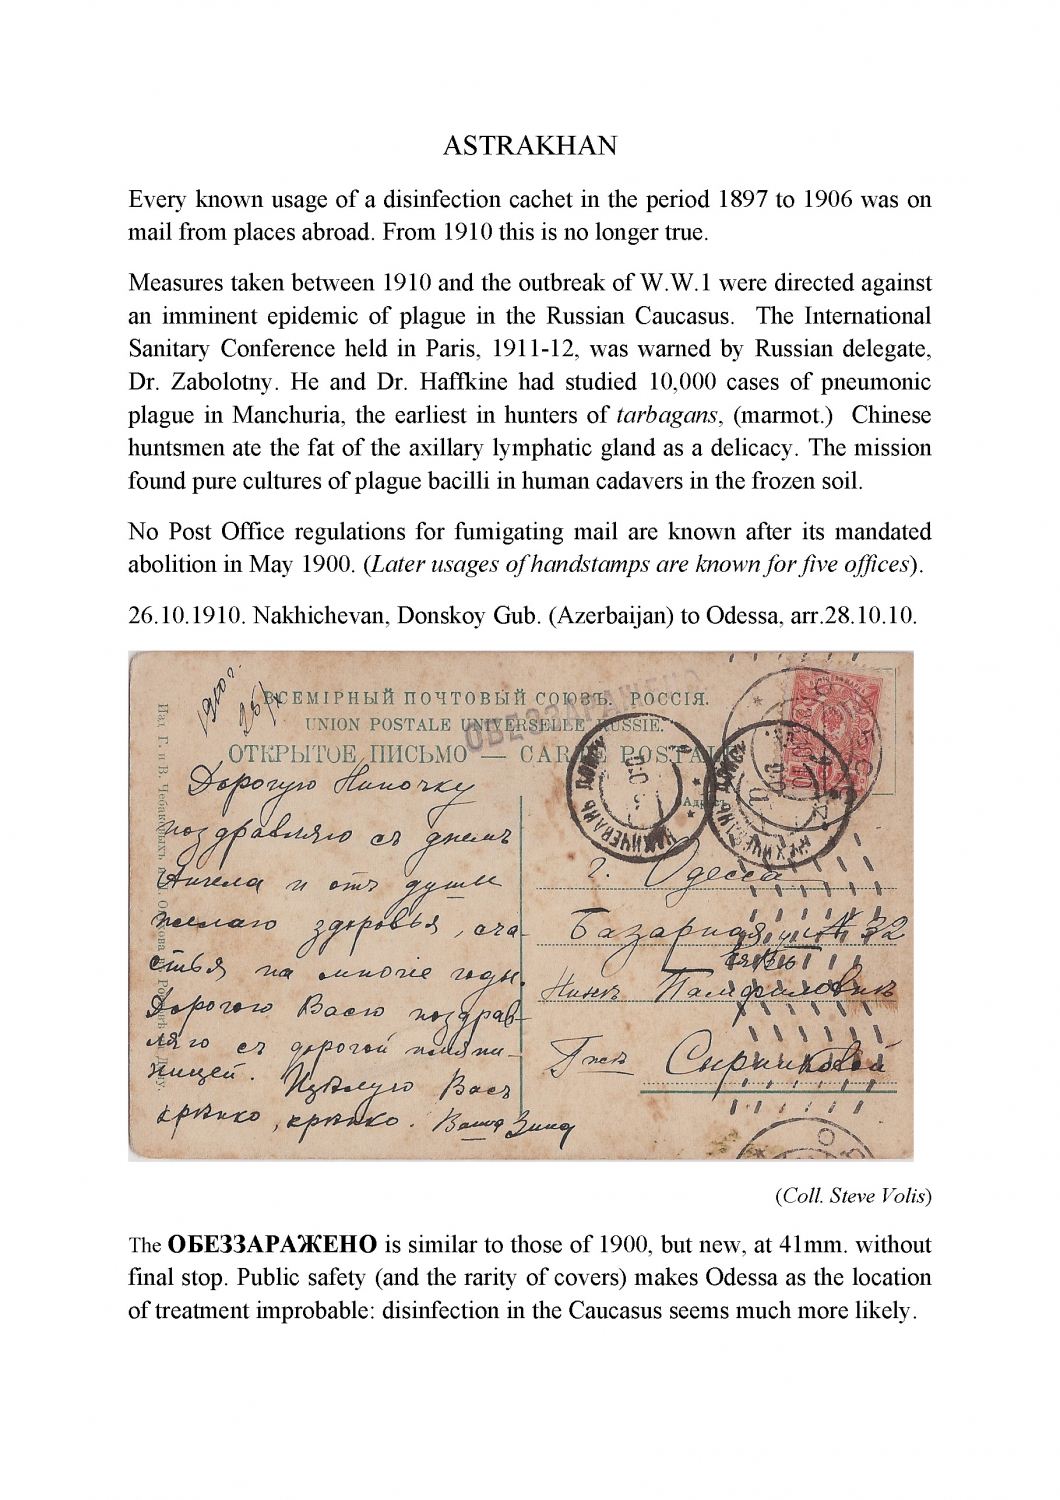 ASTRAKHAN
Every known usage of a disinfection cachet in the period 1897 to 1906 was on
mail from places abroad. From 1910 this is no longer true.
Measures taken between 1910 and the outbreak of W.W.1 were directed against
an imminent epidemic of plague in the Russian Caucasus. The International
Sanitary Conference held in Paris, 1911-12, was warned by Russian delegate,
Dr. Zabolotny. He and Dr. Haffkine had studied 10,000 cases of pneumonic
plague in Manchuria, the earliest in hunters of tarbagans, (marmot.) Chinese
huntsmen ate the fat of the axillary lymphatic gland as a delicacy. The mission
found pure cultures of plague bacilli in human cadavers in the frozen soil.
No Post Office regulations for fumigating mail are known after its mandated
abolition in May 1900. (Later usages of handstamps are known for five offices).
26.10.1910. Nakhichevan, Donskoy Gub. (Azerbaijan) to Odessa, arr.28.10.10.
1910 г.
26/X
ВСЕМІРНЫЙ ПОЧТОВЫЙ СОЮЗЪ. РОССІЯ.
UNION POSTALE UNIVERSELLE RUSSIE.
ОТКРЫТОЕ ПИСЬМО — CARTE POSTALE
ОБЕЗЗАРАЖЕНО
НАХИЧЕВАНЬ ДОНСК
НАХИЧЕВАНЬ ДОНСК
Адресъ
Дорогую Ниночку
поздравляю съ днемъ
Ангела и отъ души
желаю здоровья, сча-
стья на многіе годы.
Дорогого Васю поздрав-
ляю съ дорогой имянин-
ницей. Цѣлую Васъ
крѣпко, крѣпко. Ваша Зина
г. Одесса
Базарная № 32
Нинѣ Памфиловнѣ
Г-жѣ Сырниковой
(Coll. Steve Volis)
The ОБЕЗЗАРАЖЕНО is similar to those of 1900, but new, at 41mm. without
final stop. Public safety (and the rarity of covers) makes Odessa as the location
of treatment improbable: disinfection in the Caucasus seems much more likely.